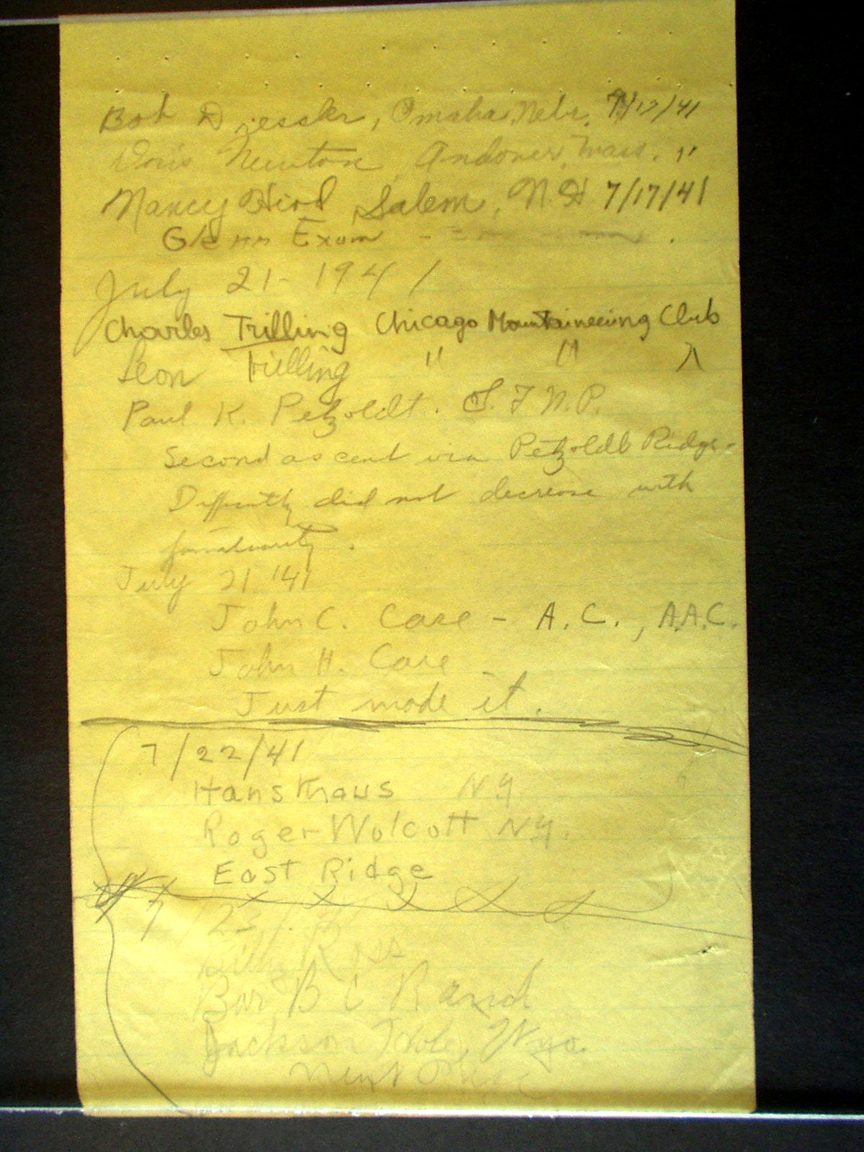 Bob Dressler, Omaha, Nebr. 7/17/41
Doris Newton Andover, Mass. "
Nancy Salem, N.H 7/17/41
Glenn Exum -
July 21 - 1941
Charles Trilling Chicago Mountaineering Club
Leon Trilling " " "
Paul K. Petzoldt. G.T.N.P.
Second ascent via Petzoldt Ridge.
Difficulty did not decrease with
familiarity.
July 21 '41
John C. Case - A.C., A.A.C.
John H. Case
Just made it.
7/22/41
Hans Kraus N.Y.
Roger Wolcott N.Y.
East Ridge
7/23/
Billy Ross
Bar B C Ranch
Jackson Hole, Wyo.